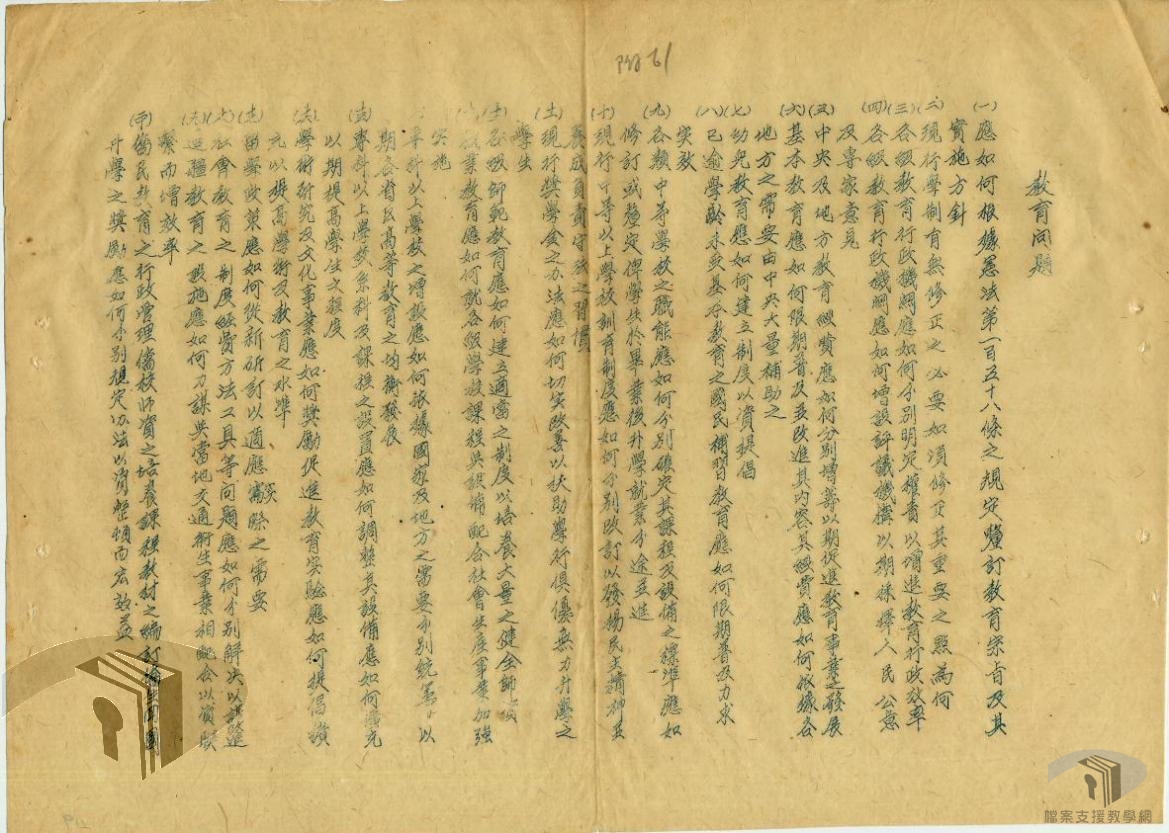 附61
教育問題
(一)應如何根據憲法第一百五十八條之規定釐訂教育宗旨及其
實施方針
(二)現行學制有無修正之必要如須修正其重要之點為何
(三)各級教育行政機關應如何分別明定權責以增進教育行政效率
(四)各級教育行政機關應如何增設評議機構以期採擇人民公意
及專家意見
(五)中央及地方教育經費應如何分別增籌以期促進教育事業之發展
(六)基本教育應如何限期普及並改進其內容其經費應如何依據各
地方之需要由中央大量補助之
(七)幼兒教育應如何建立制度以資提倡
(八)已逾學齡未受基本教育之國民補習教育應如何限期普及力求
實效
(九)各類中等學校之職能應如何分別確定其課程及設備之標準應如
修訂或釐定俾學生於畢業後升學就業分途並進
(十)現行中等以上學校訓育制度應如何分別改訂以發揚民主精神並
養成負責守法之習慣
(十一)現行獎學金之辦法應如何切實改善以扶助學行俱優無力升學之
學生
(十二)各級師範教育應如何建立適當之制度以培養大量之健全師資
職業教育應如何就各級學校課程與設備配合社會生產事業加強
實施
專科以上學校之增設應如何依據國家及地方之需要分別統籌以
期各省區高等教育之均衡發展
專科以上學校系科及課程之設置應如何調整其設備應如何擴充
以期提高學生之程度
學術研究及文化事業應如何獎勵促進教育實驗應如何提倡擴
充以提高學術及教育之水準
留學政策應如何從新研訂以適應實際之需要
社會教育之制度經費方法工具等問題應如何分別解決以謀
邊疆教育之設施應如何力謀與當地交通衛生事業相配合以資
繁而增效率
(甲)僑民教育之行政管理僑校師資之培養課程教材之編訂
升學之獎勵應如何分別規定辦法以資整頓而宏效益
P12
檔案支援教學網